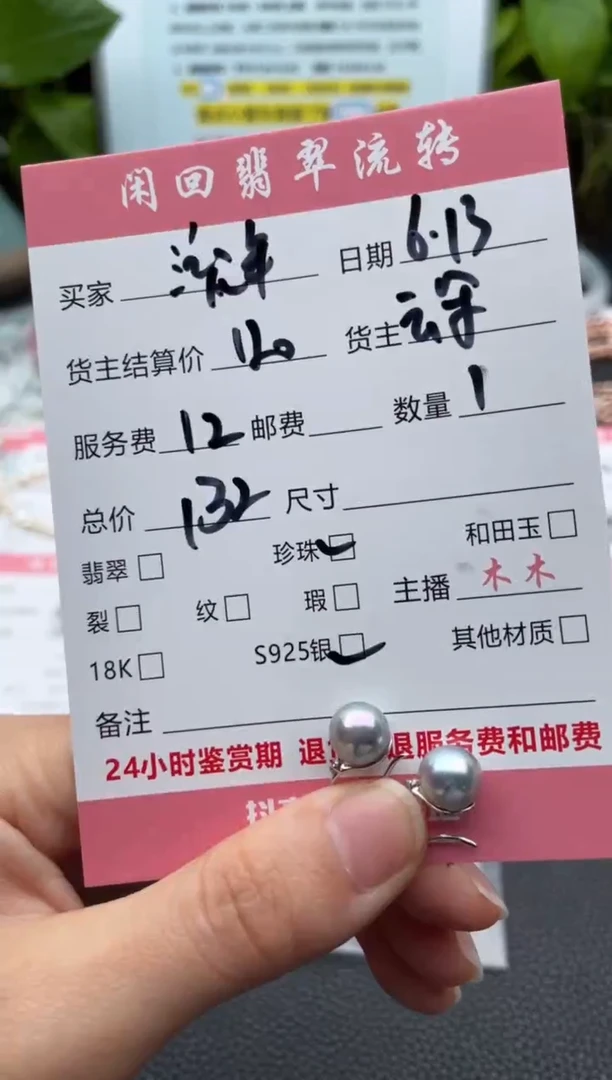 闲回翡翠流转
买家 日期 6.13
货主结算价 120 货主 云深
服务费 12 邮费 数量 1
总价 132 尺寸
翡翠 珍珠 和田玉
裂 纹 瑕 主播 木木
18K S925银 其他材质
备注
24小时鉴赏期 退 退服务费和邮费